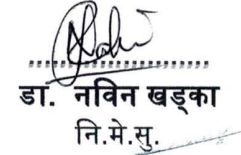 डा. नविन खड्का
नि.मे.सु.